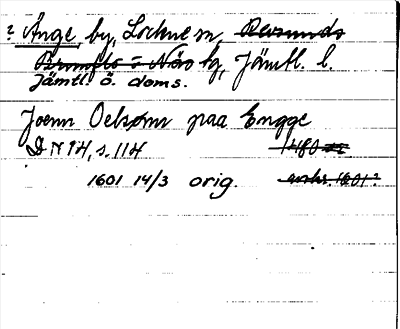 ? Ånge by, Lockne sn, Revsunds
Brunflo o Näs tg, Jämtl. l.
Jämtl. ö. doms.
Joenn Oelsønn paa Engge
DN 14, s. 114 1480
1601 14/3 orig. avskr. 1601?